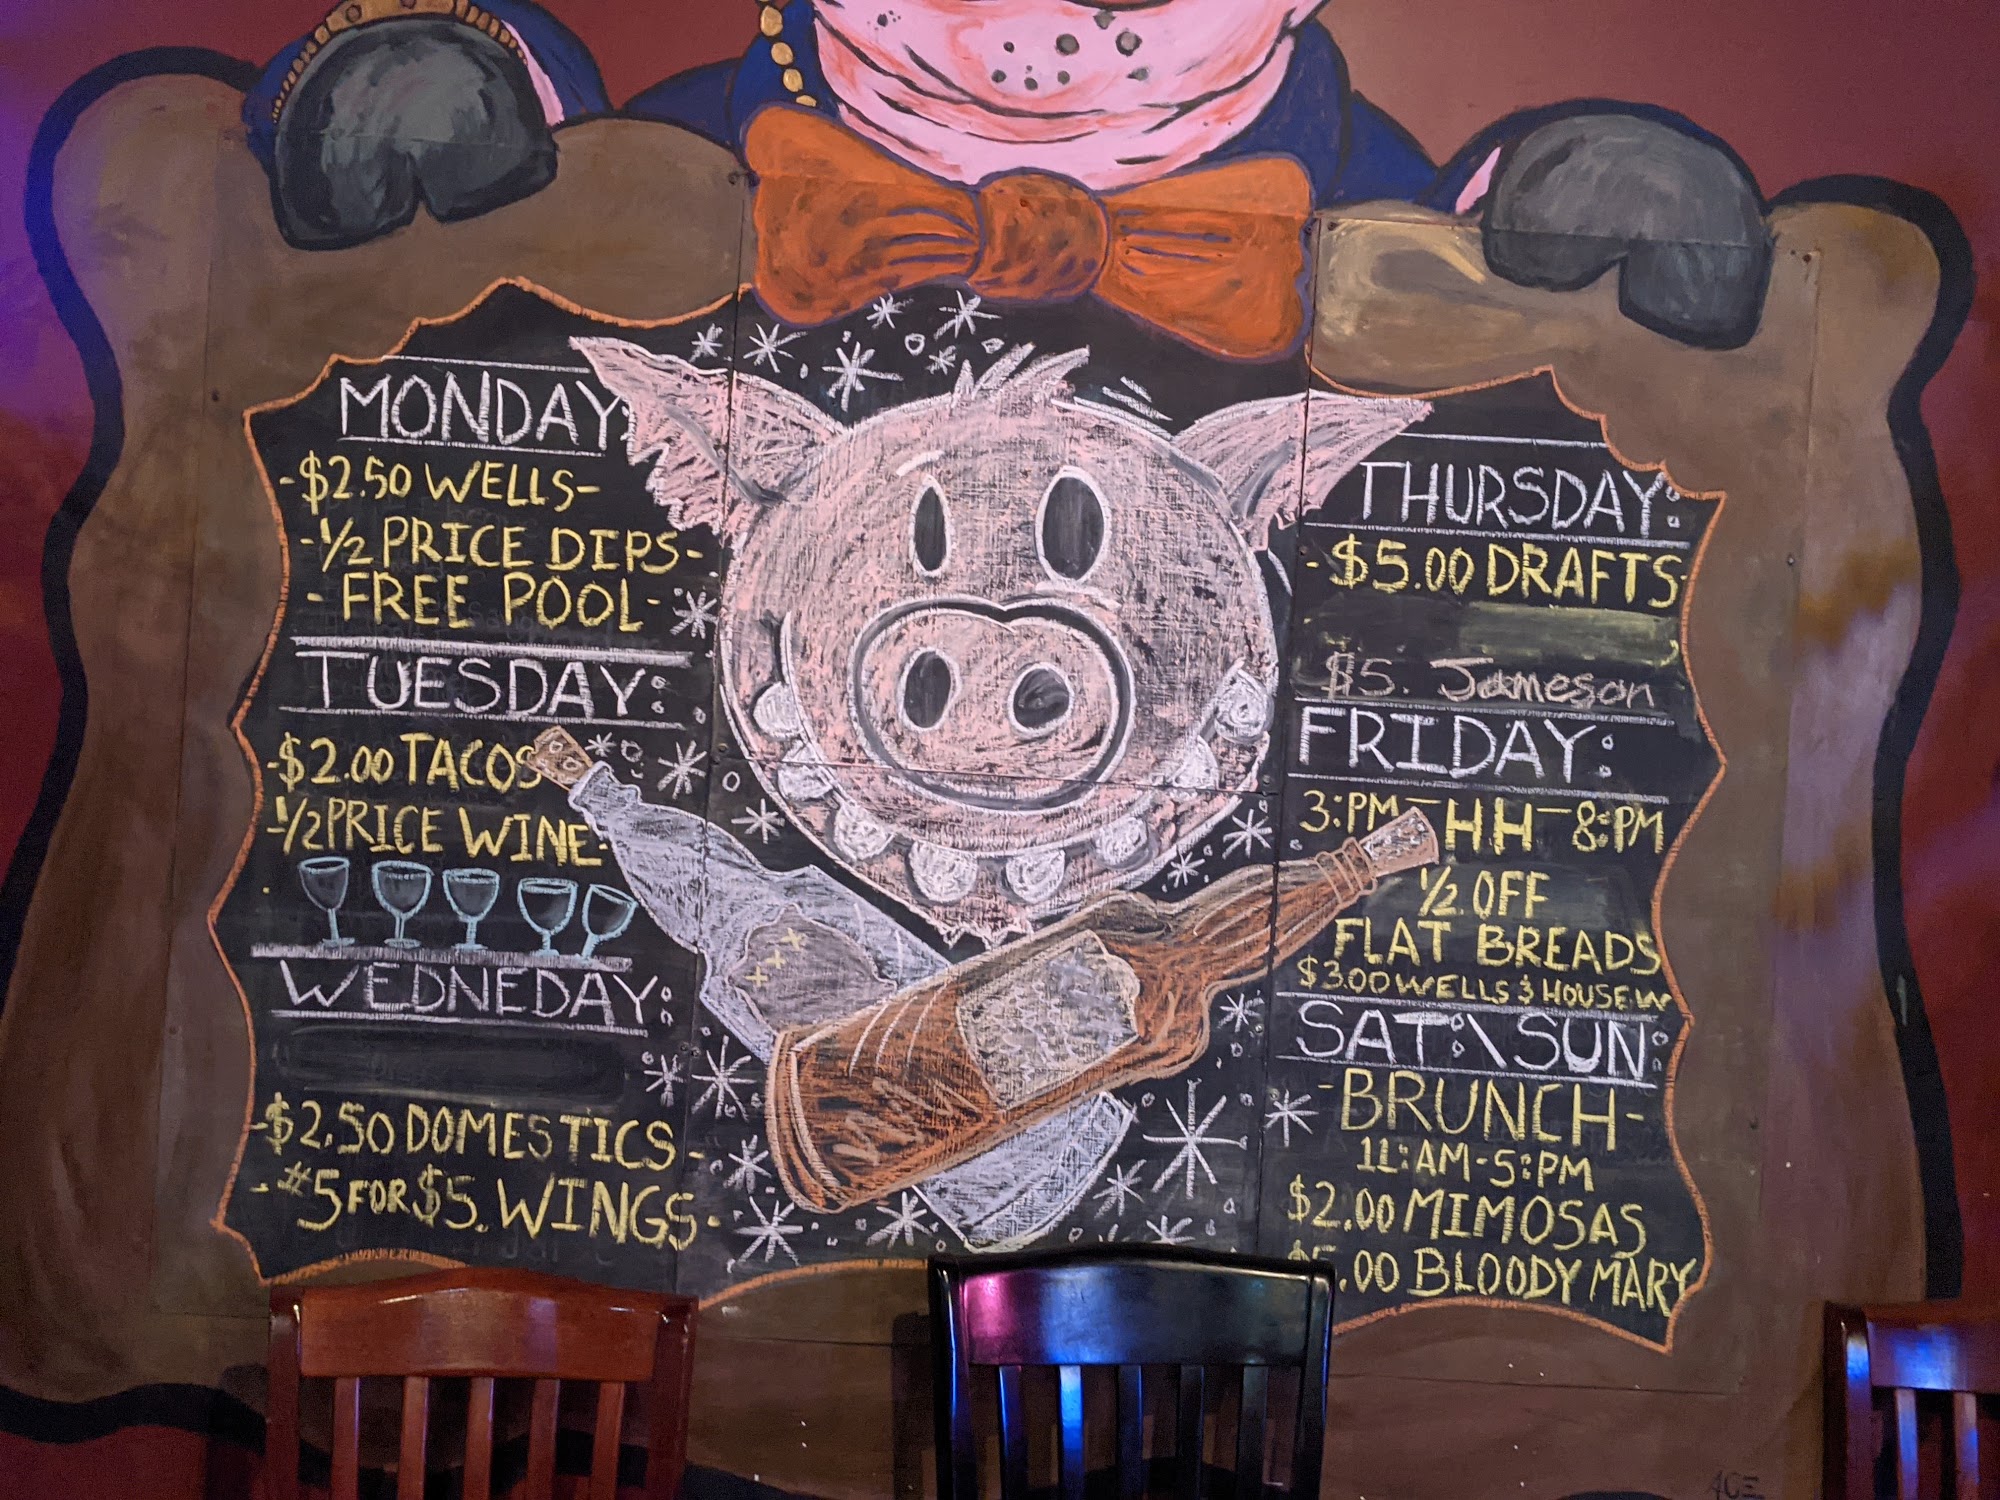 MONDAY:
-$2.50 WELLS-
-1/2 PRICE DIPS-
-FREE POOL-
TUESDAY:
-$2.00 TACOS
-1/2 PRICE WINE-
WEDNEDAY:
-$2.50 DOMESTICS-
-#5 FOR $5. WINGS-
THURSDAY:
-$5.00 DRAFTS-
$5. Jameson
FRIDAY:
3:PM-HH-8:PM
1/2 OFF
FLAT BREADS
$3.00 WELLS & HOUSE W
SAT:\SUN:
-BRUNCH-
11:AM-5:PM
$2.00 MIMOSAS
$5.00 BLOODY MARY
ACE